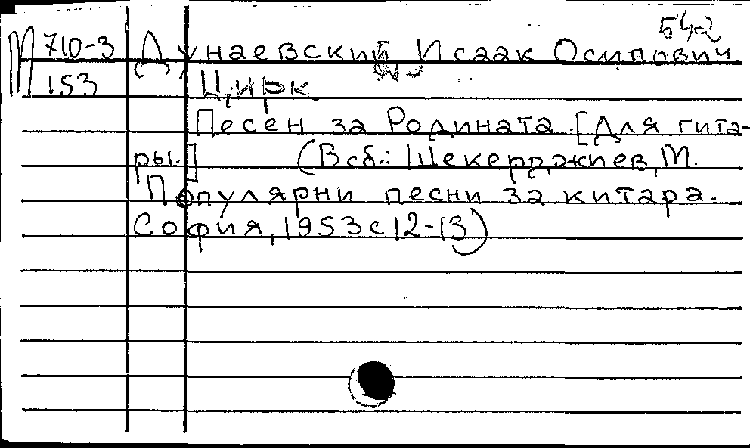 54-2
М 710-3 Дунаевский Исаак Осипович
153 Цирк
Песен за Родината. [Для гита-
ры.] (В сб.: Шекерджиев, М.
Популярни песни за китара.
София, 1953 с 12-13)